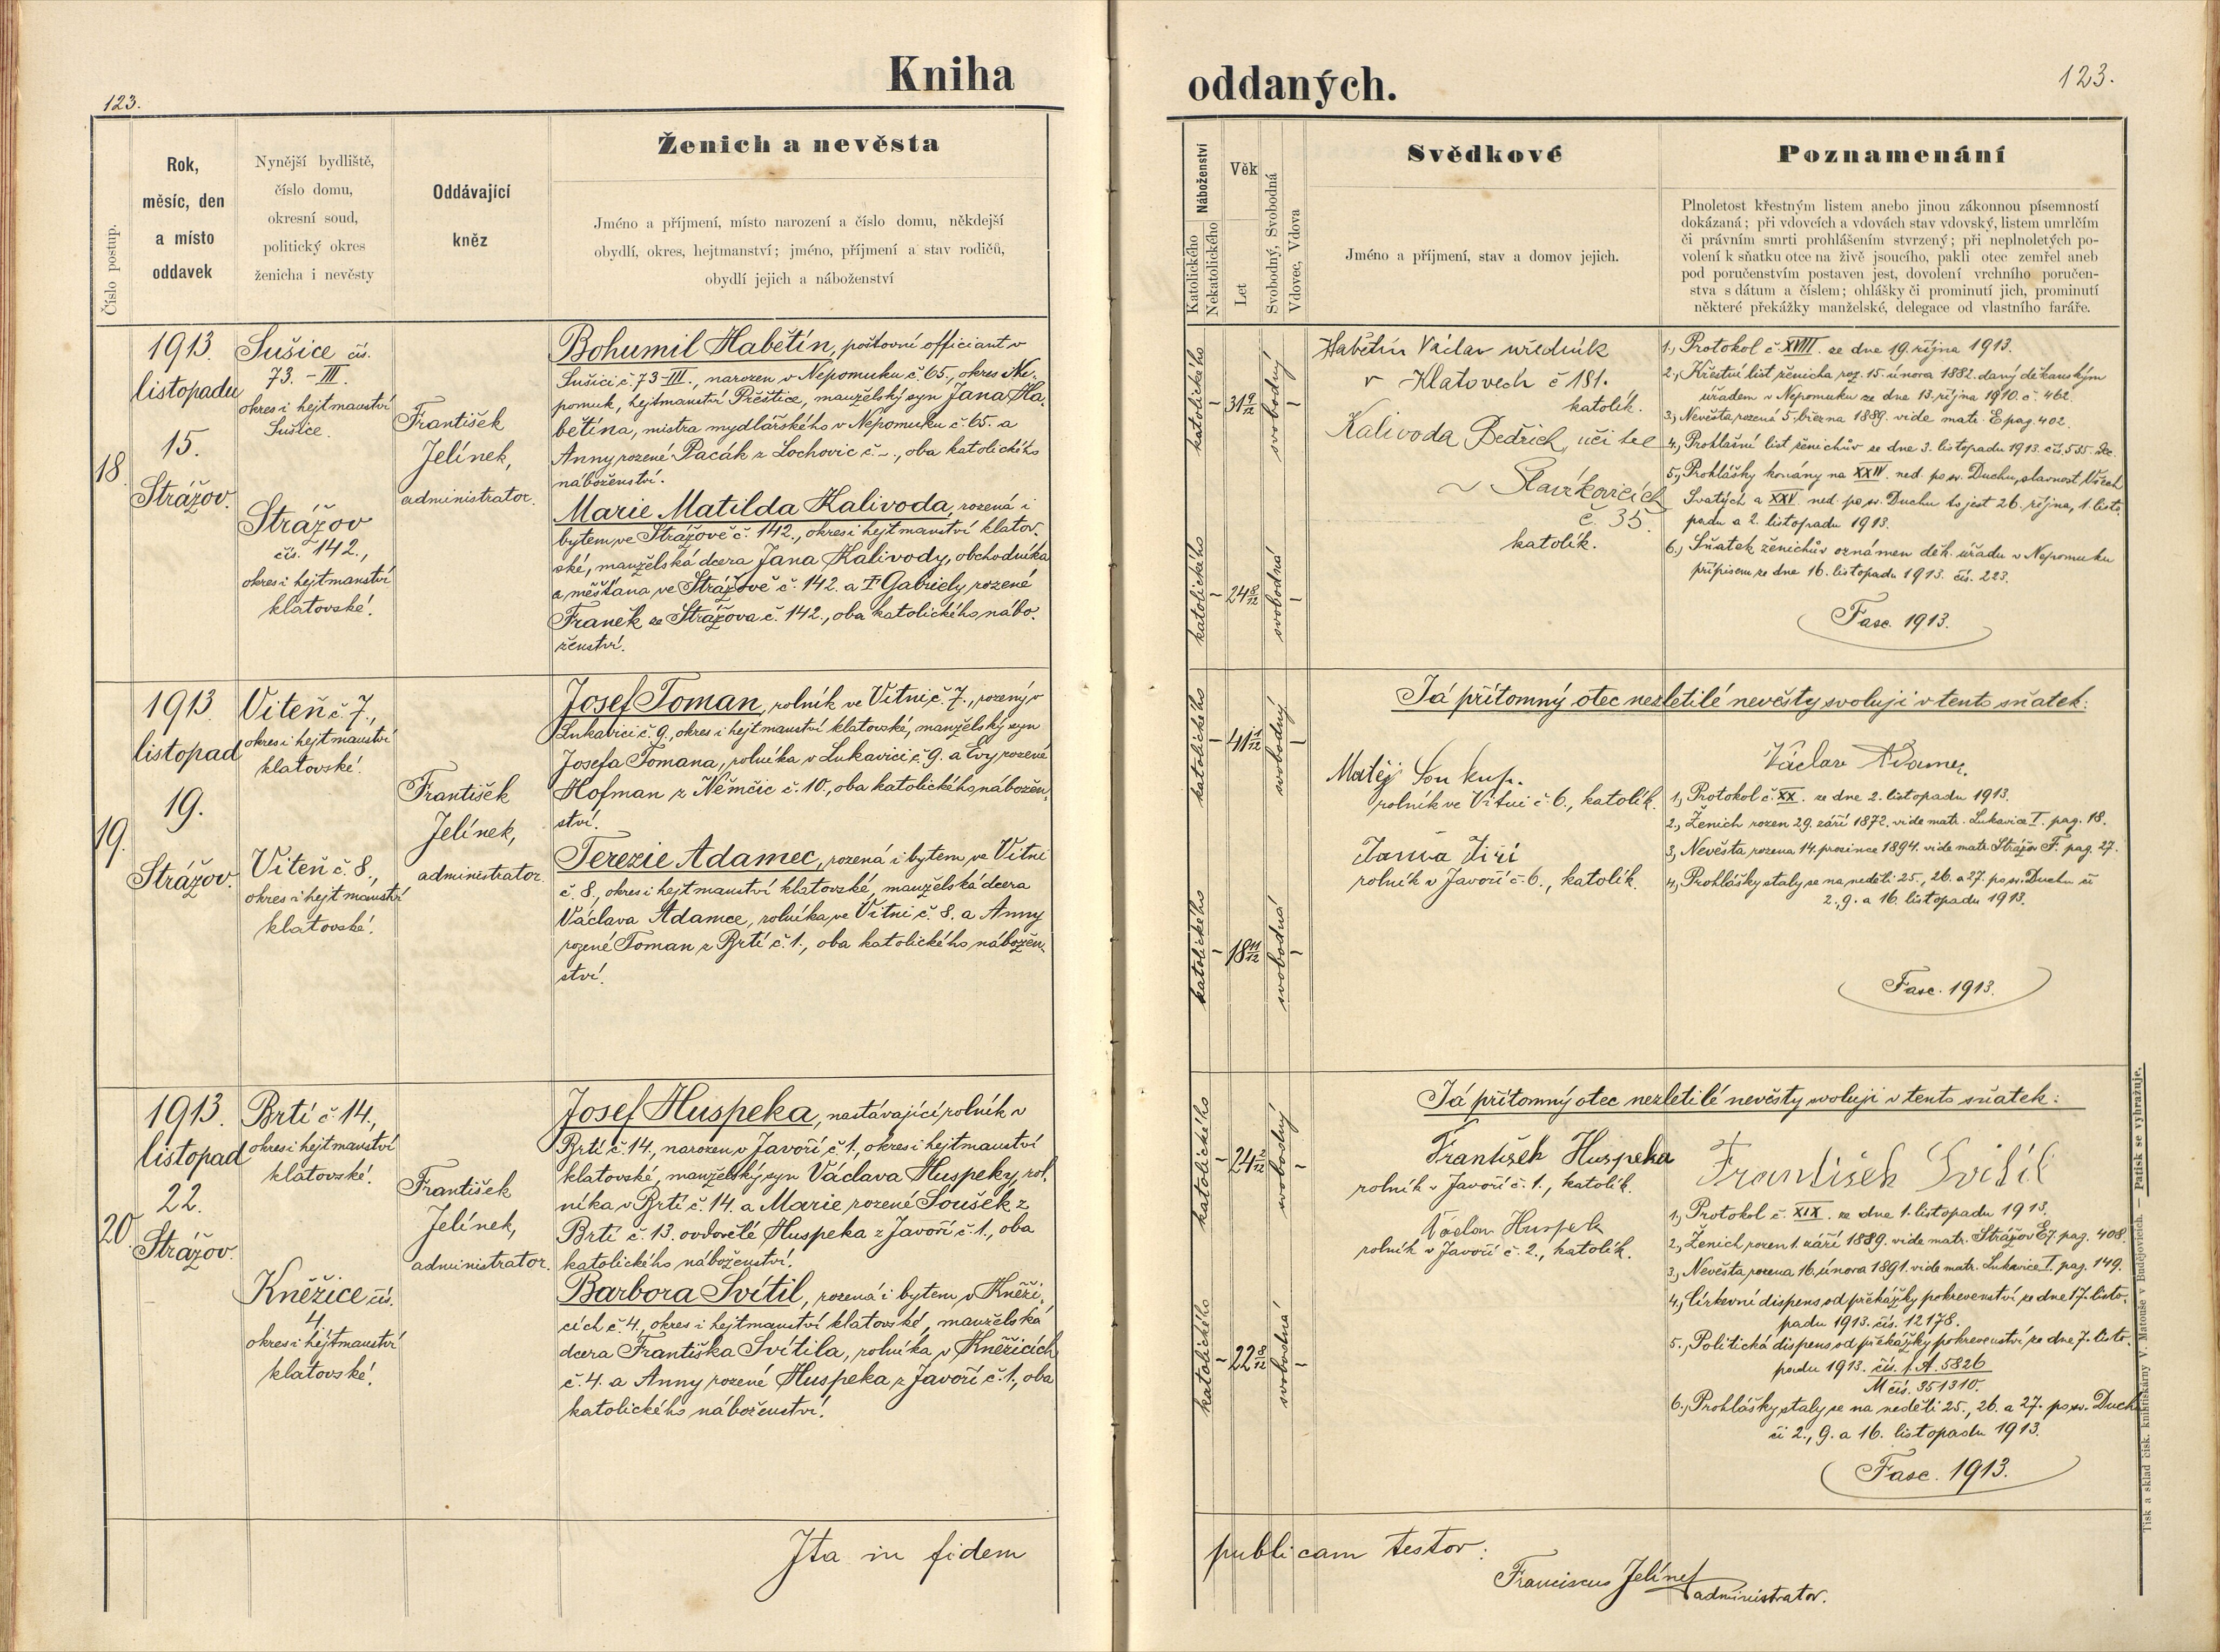 123.
Kniha
Číslo postup.
Rok,
měsíc, den
a místo
oddavek
Nynější bydliště,
číslo domu,
okresní soud,
politický okres
ženicha i nevěsty
Oddávající
kněz
Ženich a nevěsta
Jméno a příjmení, místo narození a číslo domu, někdejší
obydlí, okres, hejtmanství; jméno, příjmení a stav rodičů,
obydlí jejich a náboženství
18.
1913.
listopadu
15.
Strážov.
Sušice čís.
73. - III.
okres i hejtmanství
Sušice.
Strážov
čís. 142.,
okres i hejtmanství
klatovské.
František
Jelínek,
administrator.
Bohumil Habětín, poštovní officiant v
Sušici č. 73-III., narozen v Nepomuku č. 65., okres Ne-
pomuk, hejtmanství Přeštice, manželský syn Jana Ha-
bětína, mistra mydlářského v Nepomuku č. 65. a
Anny rozené Pacák z Lochovic č. -., oba katolického
náboženství.
Marie Matilda Kalivoda, rozená i
bytem ve Strážově č. 142., okres i hejtmanství klatov-
ské, manželská dcera Jana Kalivody, obchodníka
a měšťana ve Strážově č. 142. a Gabriely rozené
Franěk ze Strážova č. 142., oba katolického nábo-
ženství.
19.
1913.
listopad
19.
Strážov.
Viteň č. 7.,
okres i hejtmanství
klatovské.
Viteň č. 8.,
okres i hejtmanství
klatovské.
František
Jelínek,
administrator.
Josef Toman, rolník ve Vítni č. 7., rozený v
Lukavici č. 9., okres i hejtmanství klatovské, manželský syn
Josefa Tomana, rolníka v Lukavici č. 9. a Evy rozené
Hofman z Němčic č. 10., oba katolického nábožen-
ství.
Terezie Adamec, rozená i bytem ve Vítni
č. 8., okres i hejtmanství klatovské, manželská dcera
Václava Adamce, rolníka ve Vítni č. 8. a Anny
rozené Toman z Brtí č. 1., oba katolického nábožen-
ství.
20.
1913.
listopad
22.
Strážov.
Brtí č. 14.,
okres i hejtmanství
klatovské.
Kněžice čís.
4.
okres i hejtmanství
klatovské.
František
Jelínek,
administrator.
Josef Huspeka, nastávající rolník v
Brtí č. 14., narozen v Javoří č. 1., okres i hejtmanství
klatovské, manželský syn Václava Huspeky, rol-
níka v Brtí č. 14. a Marie rozené Soušek z
Brtí č. 13. ovdovělé Huspeka z Javoří č. 1., oba
katolického náboženství.
Barbora Svítil, rozená i bytem v Kněži-
cích č. 4., okres i hejtmanství klatovské, manželská
dcera Františka Svítila, rolníka v Kněžicích
č. 4. a Anny rozené Huspeka z Javoří č. 1., oba
katolického náboženství.
Ita in fidem
oddaných.
123.
Náboženství
Katolického
Nekatolického
Věk
Let
Svobodný, Svobodná
Vdovec, Vdova
Svědkové
Jméno a příjmení, stav a domov jejich.
Poznamenání
Plnoletost křestným listem anebo jinou zákonnou písemností
dokázaná; při vdovcích a vdovách stav vdovský, listem umrlčím
či právním smrti prohlášením stvrzený; při neplnoletých po-
volení k sňatku otce na živě jsoucího, pakli otec zemřel aneb
pod poručenstvím postaven jest, dovolení vrchního poručen-
stva s dátum a číslem; ohlášky či prominutí jich, prominutí
některé překážky manželské, delegace od vlastního faráře.
katolického - 31 9/12 svobodný -
katolického - 24 8/12 svobodná -
Habětín Václav úředník
v Klatovech č 181.
katolík.
Kalivoda Bedřich, učitel
v Slavíkovicích
č. 35.
katolík.
1., Protokol č. XVIII. ze dne 19. října 1913.
2., Křestní list ženicha roz. 15. února 1882. daný děkanským
úřadem v Nepomuku ze dne 13. října 1910. č. 462.
3., Nevěsta rozená 5. března 1889. vide matr. E pag. 402.
4., Prohlašní list ženichův ze dne 3. listopadu 1913. čís. 535.
5., Prohlášky konány na XXIV. ned. po sv. Duchu, slavnost Všech
Svatých a XXV. ned. po sv. Duchu to jest 26. října, 1. listo-
padu a 2. listopadu 1913.
6., Sňatek ženichův oznámen děk. úřadu v Nepomuku
přípisem ze dne 16. listopadu 1913. čís. 223.
Fasc. 1913.
katolického - 41 1/12 svobodný -
katolického - 18 11/12 svobodná -
Já přítomný otec nezletilé nevěsty svoluji v tento sňatek:
Václav Adamec.
Matěj Soukup.
rolník ve Vítni č. 6., katolík.
Janda Jiří
rolník v Javoří č. 6., katolík.
1., Protokol č. XX. ze dne 2. listopadu 1913.
2., Ženich rozen 29. září 1872. vide matr. Lukavice I. pag. 18.
3., Nevěsta rozena 14. prosince 1894. vide matr. Strážov F. pag. 27.
4., Prohlášky staly se na neděli 25., 26. a 27. po sv. Duchu či
2., 9. a 16. listopadu 1913.
Fasc. 1913.
katolického - 24 2/12 svobodný -
katolického - 22 8/12 svobodná -
Já přítomný otec nezletilé nevěsty svoluji v tento sňatek:
František Huspeka
rolník v Javoří č. 1., katolík.
František Svítil
Václav Huspek
rolník v Javoří č. 2., katolík.
1., Protokol č. XIX. ze dne 1. listopadu 1913.
2., Ženich rozen 1. září 1889. vide matr. Strážov E. pag. 408.
3., Nevěsta rozena 16. února 1891. vide matr. Lukavice I. pag. 149.
4., Církevní dispens od překážky pokrevenství ze dne 17. listo-
padu 1913. čís. 12178.
5., Politická dispens od překážky pokrevenství ze dne 7. listo-
padu 1913. čís. f. A. 5826
M čís. 351310.
6., Prohlášky staly se na neděli 25., 26. a 27. po sv. Duch
či 2., 9. a 16. listopadu 1913.
Fasc. 1913.
publicam testor:
Franciscus Jelínek
administrator.
Tisk a sklad cís. knihtiskárny V. Matouše v Budějovicích. — Patisk se vyhražuje.